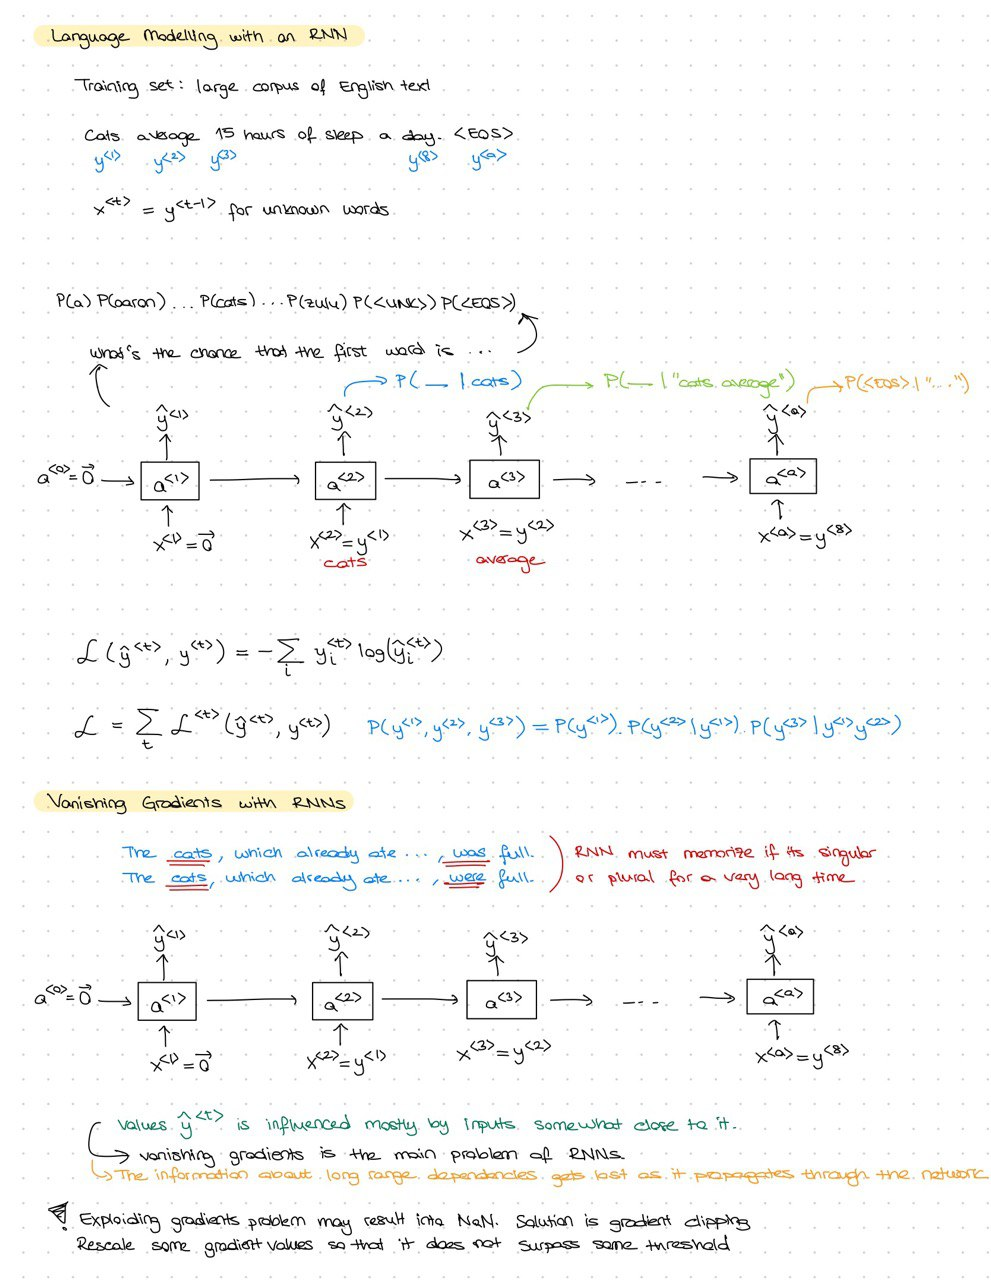 Language Modelling with an RNN
Training set: large corpus of English text
Cats average 15 hours of sleep a day. <EOS>
y<1> y<2> y<3> y<8> y<9>
x<t> = y<t-1> for unknown words
P(a) P(aaron) ... P(cats) ... P(zulu) P(<UNK>) P(<EOS>)
what's the chance that the first word is ...
P( __ | cats) P( __ | "cats average") P(<EOS> | "...")
ŷ<1> ŷ<2> ŷ<3> ŷ<9>
a<0> = 0⃗ a<1> a<2> a<3> ... a<9>
x<1> = 0⃗ x<2> = y<1> x<3> = y<2> x<9> = y<8>
cats average
ℒ(ŷ<t>, y<t>) = -∑i yi<t> log(ŷi<t>)
ℒ = ∑t ℒ<t>(ŷ<t>, y<t>) P(y<1>, y<2>, y<3>) = P(y<1>). P(y<2> | y<1>). P(y<3> | y<1> y<2>)
Vanishing Gradients with RNNs
The cats, which already ate ..., was full. RNN must memorize if its singular
The cats, which already ate ..., were full. or plural for a very long time
ŷ<1> ŷ<2> ŷ<3> ŷ<9>
a<0> = 0⃗ a<1> a<2> a<3> ... a<9>
x<1> = 0⃗ x<2> = y<1> x<3> = y<2> x<9> = y<8>
values ŷ<t> is influenced mostly by inputs somewhat close to it.
vanishing gradients is the main problem of RNNs.
The information about long range dependencies gets lost as it propagates through the network
! Exploiding gradients problem may result into NaN. Solution is gradient clipping
Rescale some gradient values so that it does not surpass some threshold